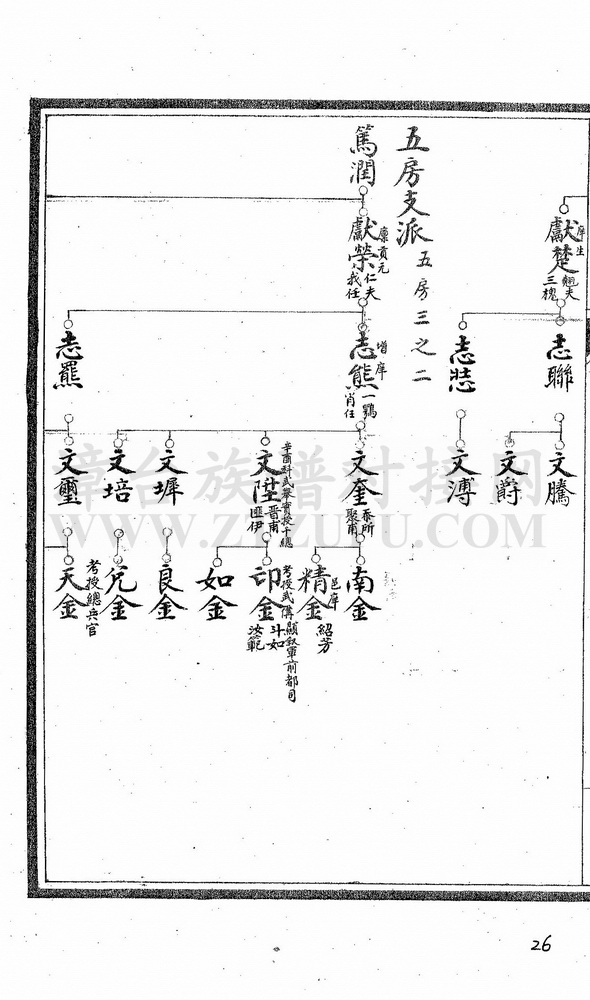 獻楚
庠生
翹夫
三槐
志聯
志㤞
文騰
文爵
文溥
五房支派
五房三之二
篤潤
獻榮
廩貢元
仁夫
我任
志熊
增庠
一鶚
肖任
志羆
文奎
泰所
聚甫
文陞
辛酉科武舉實授千總
晋甫
匪伊
文墀
文培
文璽
南金
精金
邑庠
紹芳
印金
考授武傋顯敘軍前都司
斗如
汝範
如金
良金
兌金
考授總兵官
天金
章台族譜对接网
WWW.ZTZUPU.COM
26